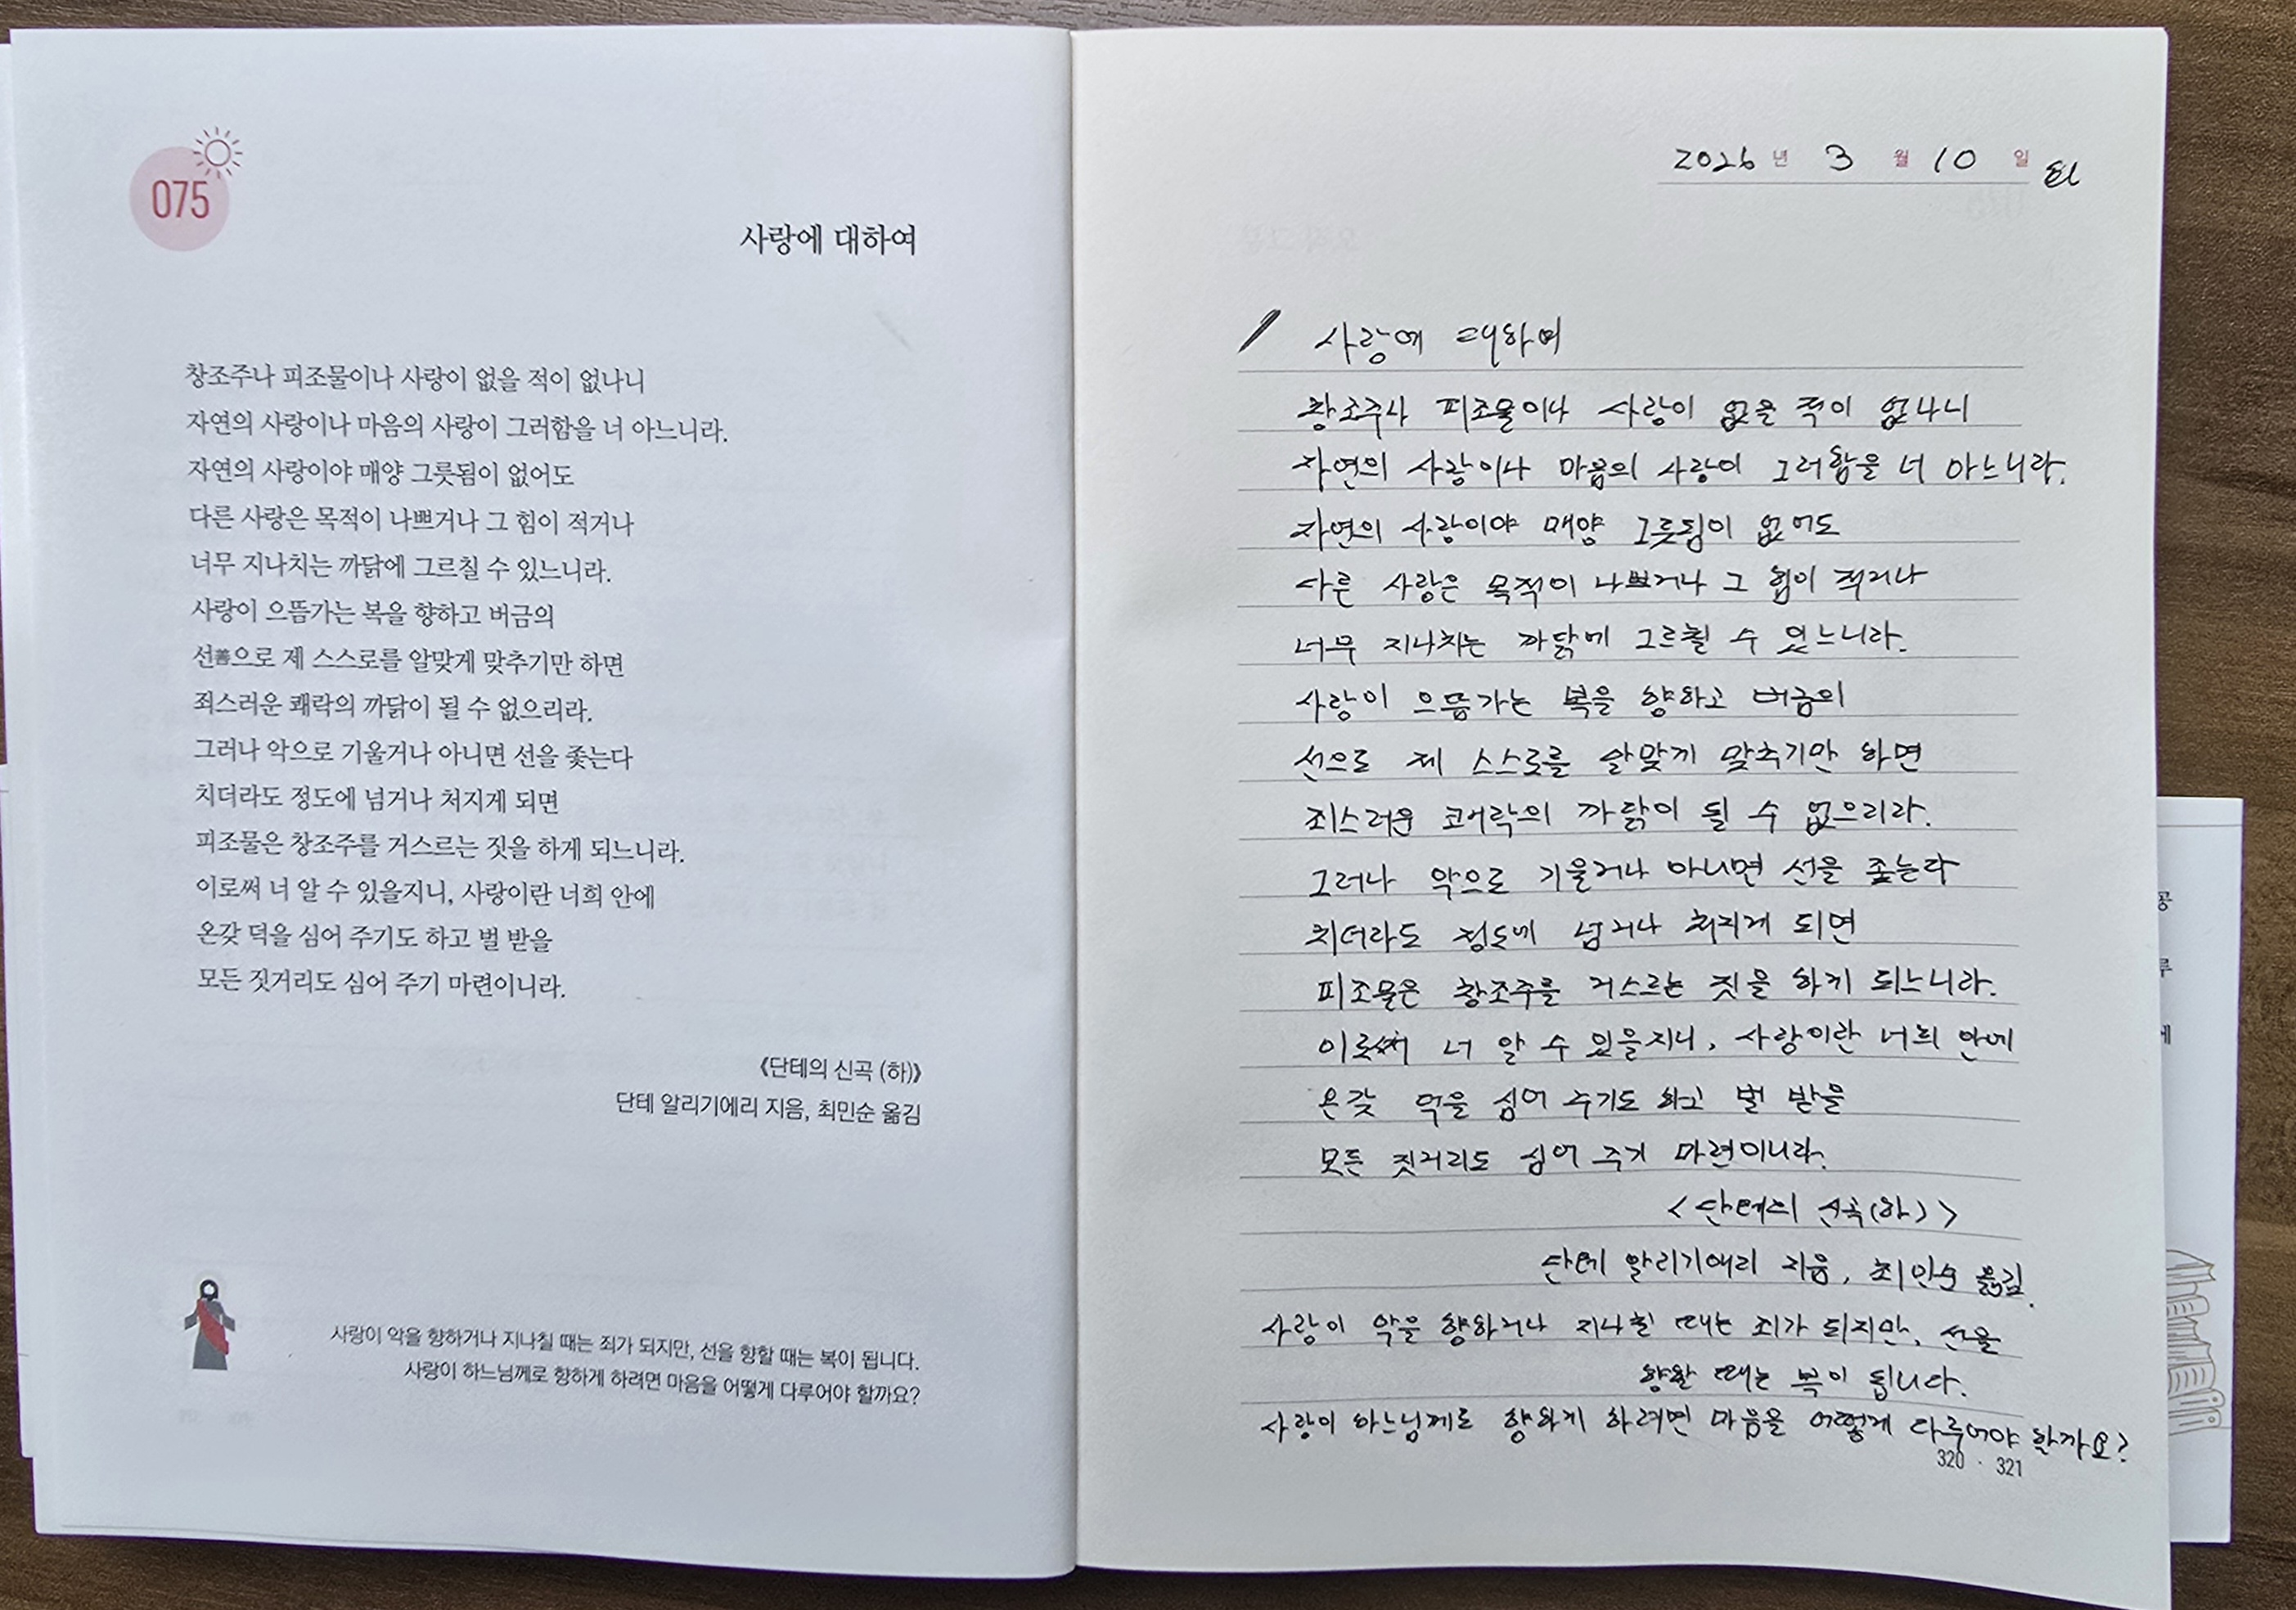 075
사랑에 대하여
창조주나 피조물이나 사랑이 없을 적이 없나니
자연의 사랑이나 마음의 사랑이 그러함을 너 아느니라.
자연의 사랑이야 매양 그릇됨이 없어도
다른 사랑은 목적이 나쁘거나 그 힘이 적거나
너무 지나치는 까닭에 그르칠 수 있느니라.
사랑이 으뜸가는 복을 향하고 버금의
선善으로 제 스스로를 알맞게 맞추기만 하면
죄스러운 쾌락의 까닭이 될 수 없으리라.
그러나 악으로 기울거나 아니면 선을 좇는다
치더라도 정도에 넘거나 처지게 되면
피조물은 창조주를 거스르는 짓을 하게 되느니라.
이로써 너 알 수 있을지니, 사랑이란 너희 안에
온갖 덕을 심어 주기도 하고 벌 받을
모든 짓거리도 심어 주기 마련이니라.
《단테의 신곡 (하)》
단테 알리기에리 지음, 최민순 옮김
사랑이 악을 향하거나 지나칠 때는 죄가 되지만, 선을 향할 때는 복이 됩니다.
사랑이 하느님께로 향하게 하려면 마음을 어떻게 다루어야 할까요?
2026 년 3 월 10 일
사랑에 대하여
창조주나 피조물이나 사랑이 없을 적이 없나니
자연의 사랑이나 마음의 사랑이 그러함을 너 아느니라.
자연의 사랑이야 매양 그릇됨이 없어도
다른 사랑은 목적이 나쁘거나 그 힘이 적거나
너무 지나치는 까닭에 그르칠 수 있느니라.
사랑이 으뜸가는 복을 향하고 버금의
선으로 제 스스로를 알맞게 맞추기만 하면
죄스러운 쾌락의 까닭이 될 수 없으리라.
그러나 악으로 기울거나 아니면 선을 좇는다
치더라도 정도에 넘거나 처지게 되면
피조물은 창조주를 거스르는 짓을 하게 되느니라.
이로써 너 알 수 있을지니, 사랑이란 너희 안에
온갖 덕을 심어 주기도 하고 벌 받을
모든 짓거리도 심어 주기 마련이니라.
<단테의 신곡(하)>
단테 알리기에리 지음, 최민순 옮김.
사랑이 악을 향하거나 지나칠 때는 죄가 되지만, 선을
향할 때는 복이 됩니다.
사랑이 하느님께로 향하게 하려면 마음을 어떻게 다루어야 할까요?
320 · 321
공
루
에